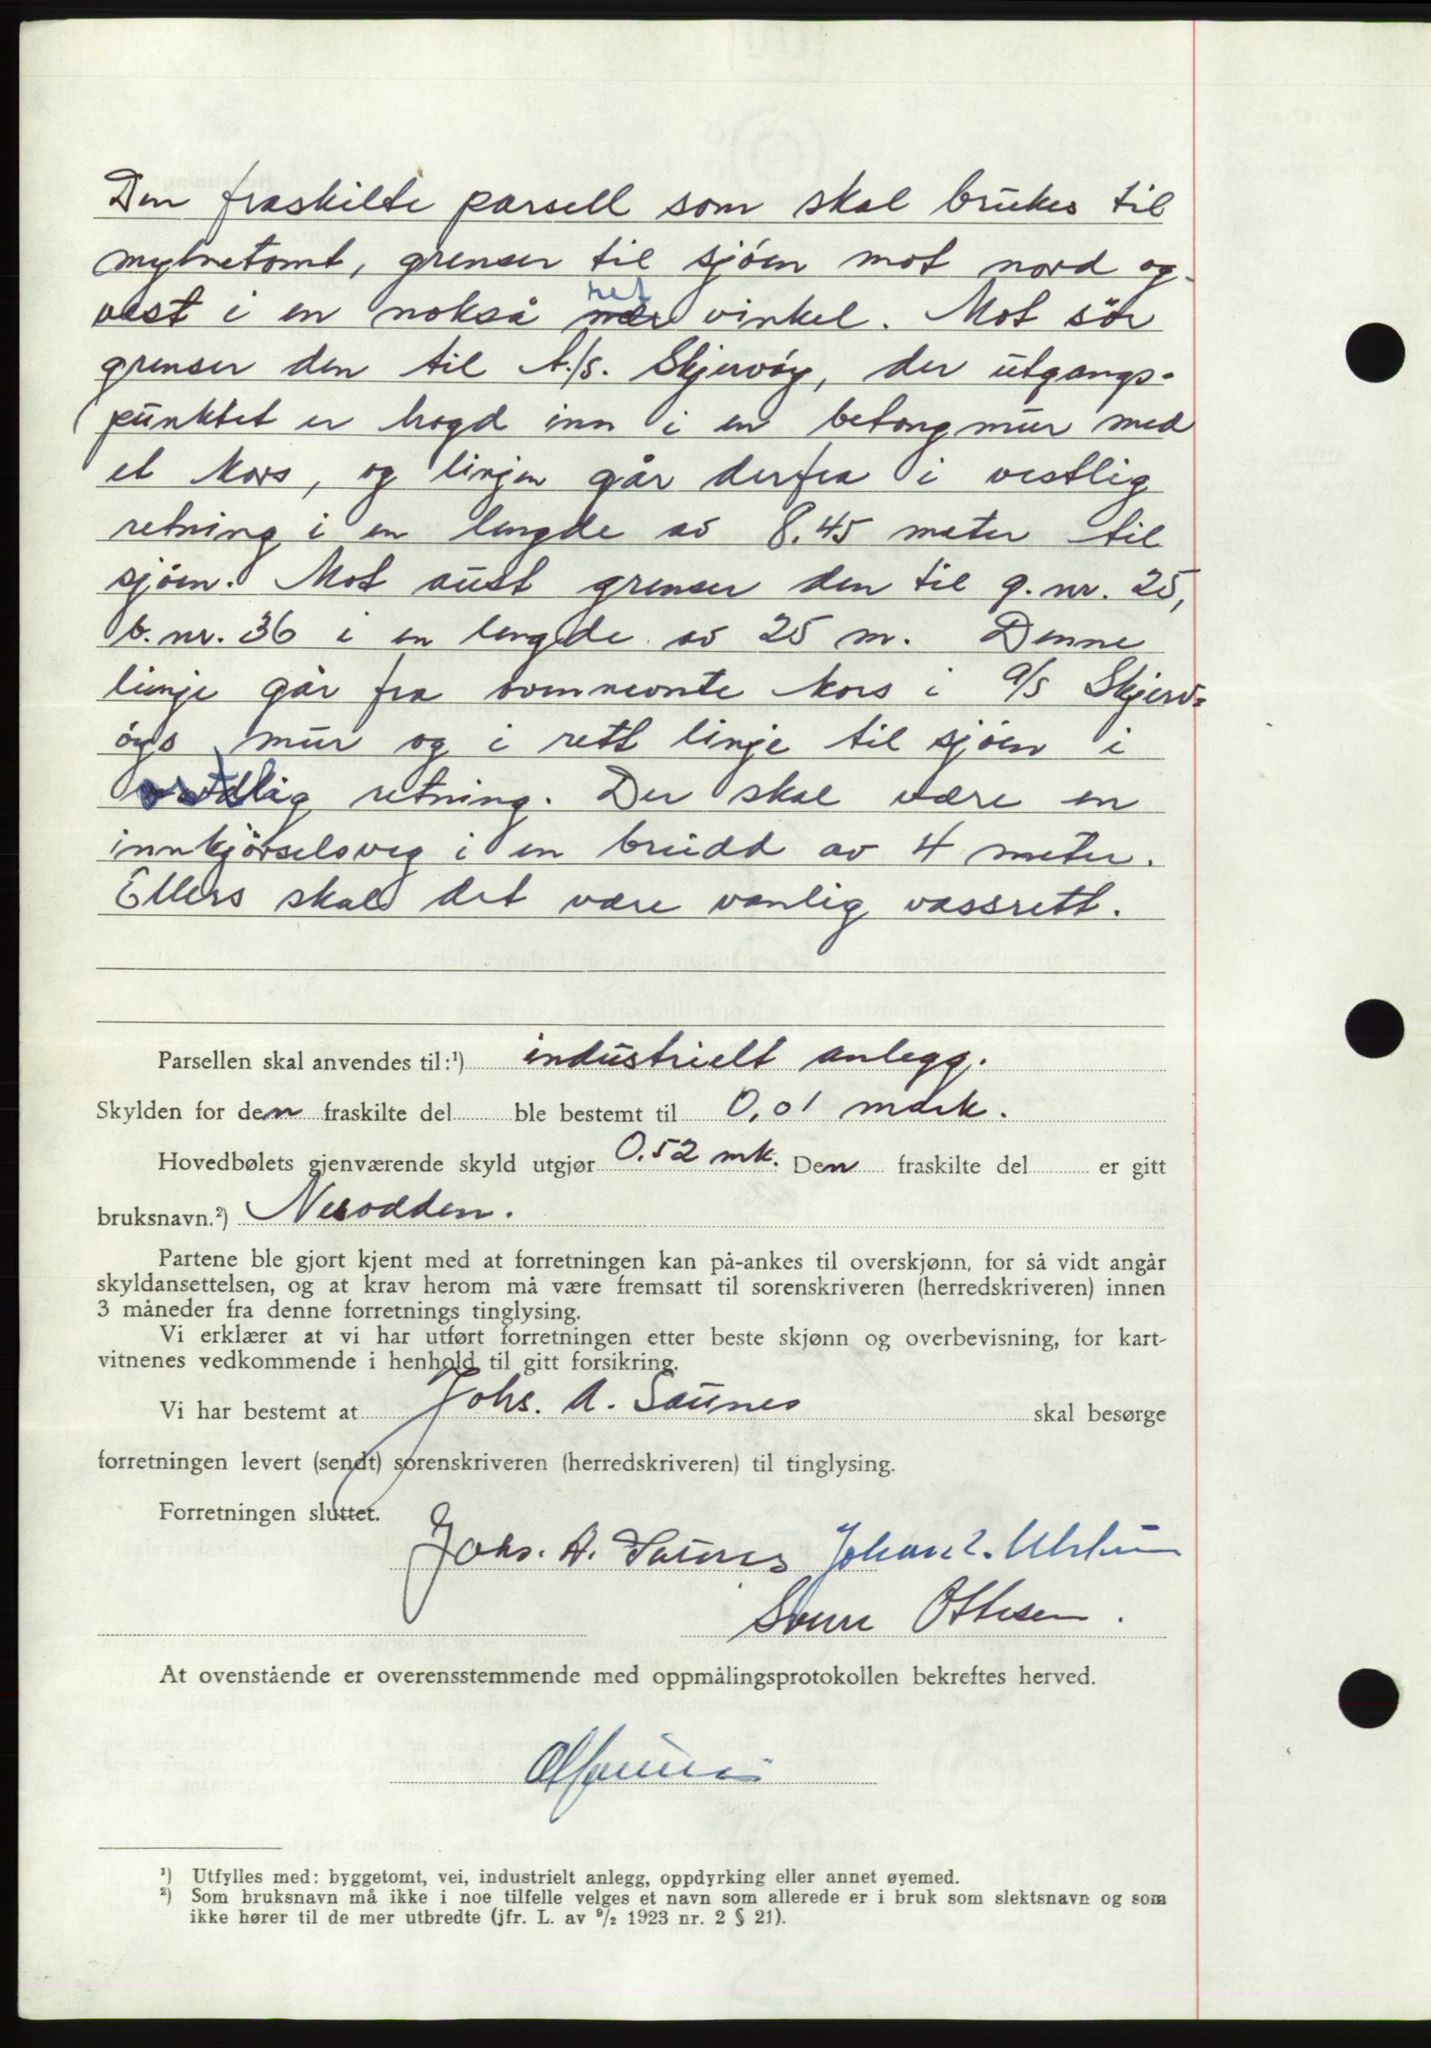 Den fraskilte parsell som skal brukes til
mylnetomt, grenser til sjøen mot nord og
vest i en nokså ret vinkel. Mot sör
grenser den til A./s. Skjervøy, der utgangs-
punktet er hogd inn i en betongmur med
et kors, og linjen går derfra i vestlig
retning i en lengde av 8.45 meter til
sjöen. Mot aust grenser den til g. nr. 25,
b. nr. 36 i en lengde av 25 m. Denne
linje går fra ovennevnte kors i A/S Skjerv-
öys mur og i rett linje til sjöen i
retning. Der skal være en
innkjörselsveg i en bridd av 4 meter.
Ellers skal det være vanlig vassrett.
Parsellen skal anvendes til:¹) industrielt anlegg.
Skylden for den fraskilte del ble bestemt til 0,01 mark.
Hovedbølets gjenværende skyld utgjør 0.52 mk. Den fraskilte del er gitt
bruksnavn.²) Nesodden.
Partene ble gjort kjent med at forretningen kan på-ankes til overskjønn, for så vidt angår
skyldansettelsen, og at krav herom må være fremsatt til sorenskriveren (herredskriveren) innen
3 måneder fra denne forretnings tinglysing.
Vi erklærer at vi har utført forretningen etter beste skjønn og overbevisning, for kart-
vitnenes vedkommende i henhold til gitt forsikring.
Vi har bestemt at Johs. A. Saunes skal besørge
forretningen levert (sendt) sorenskriveren (herredskriveren) til tinglysing.
Forretningen sluttet.
Johs. A. Saunes Johan
Sverre Ottesen.
At ovenstående er overensstemmende med oppmålingsprotokollen bekreftes herved.
¹) Utfylles med: byggetomt, vei, industrielt anlegg, oppdyrking eller annet øyemed.
²) Som bruksnavn må ikke i noe tilfelle velges et navn som allerede er i bruk som slektsnavn og som
ikke hører til de mer utbredte (jfr. L. av 9/2 1923 nr. 2 § 21).